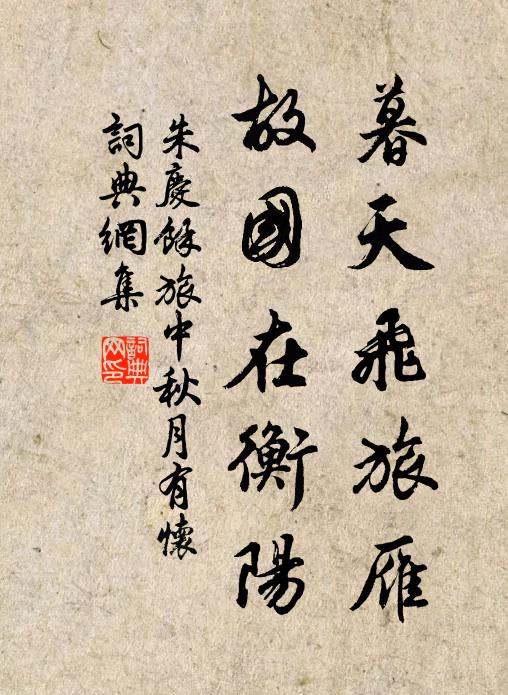 暮天飛旅雁
故國在衡陽
朱慶餘旅中秋月有懷
詞典網集
詞典網印